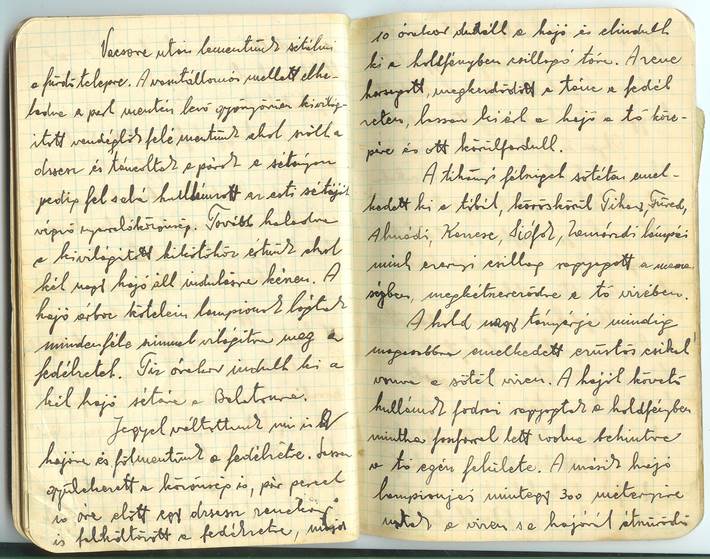 Vacsora után lementünk sétálni
a fürdőtelepre. A vasútállomás mellett elha-
ladva a part mentén levő gyönyörűen kivilág-
ított vendéglők felé mentünk ahol szólt a
dzsessz és táncoltak a párok a sétányon
pedig fel s alá hullámzott az esti sétáját
végző nyaralóközönség. Tovább haladva
a kivilágított kikötőhöz értünk ahol
két nagy hajó állt indulásra készen. A
hajó árboc kötelein lampionok lógtak
mindenféle színnel világítva meg a
fedélzetet. Tíz órakor indult ki a
két hajó sétára a Balatonra.
Jegyet váltottunk mi is a
hajóra és fölmentünk a fedélzetre. Lassan
gyülekezett a közönség is, pár perccel
10 óra előtt egy dzsessz zenekar
is felköltözött a fedélzetre, majd
10 órakor a hajó és elindult
ki a holdfényben csillogó tóra. A zene
hangzott, megkezdődött a tánc a fedél-
zeten, lassan kiért a hajó a tó köze-
pére és ott körülfordult.
A tihanyi félsziget sötéten emel-
kedett ki a tóból, köröskörül Tihany, Füred,
Almádi, Kenese, Siófok, Zamárdi lámpái
mint ezernyi csillag ragyogott a messze
ségben, megkétszereződve a tó vizében.
A hold nagy tányérja mindig
magasabbra emelkedett ezüstös csíkot
vonva a sötét vízen. A hajót követő
hullámok fodrai ragyogtak a holdfényben
mintha foszforral lett volna behintve
a tó egész felülete. A másik hajó
lampionjai mintegy 300 méternyire
a vizen s a hajóról